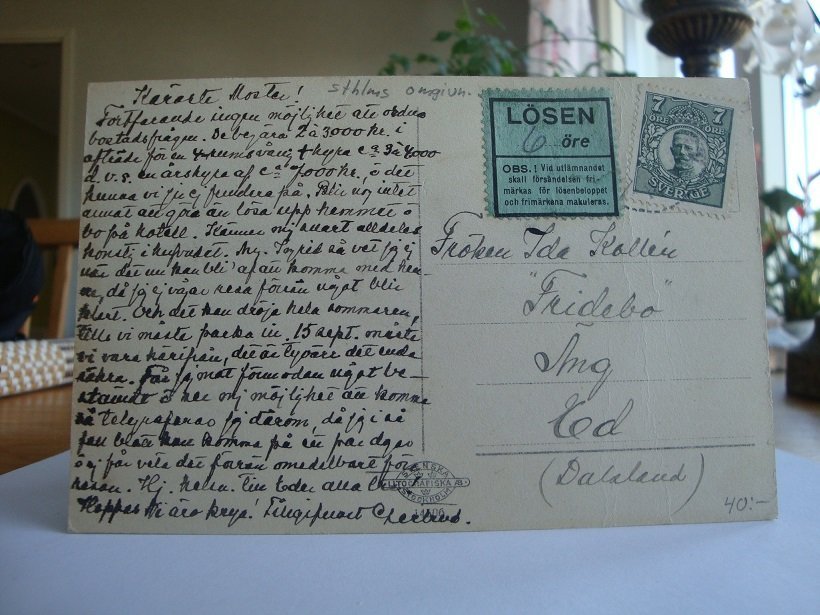 Käraste Moster!
Fortfarande ingen möjlighet att ordna
bostadsfrågan. De begära 2 à 3000 kr. i
afträde för en 4 rums våning + hyra c:a 3 à 4000
d.v.s. en årshyra af c:a 7000 kr. o det
kunna vi ju ej fundera på. Blir nog intet
annat att göra än lösa upp hemmet o
bo på hotell. Känner mig snart alldeles
konstig i hufvudet. Ang. Ingrid så vet jag ej
när det nu kan bli af att komma med
då jag ej vågar resa förrän något blir
klart. Och det kan dröja hela sommaren,
tills vi måste packa in. 15 sept. måste
vi vara härifrån, det är tyvärr det enda
säkra. Får jag mot förmodan något be-
stämdt o ser mig möjlighet att komma
så telegraferar jag därom, då jag i så
fall bara kan komma på en par dagar
o ej får veta det förrän omedelbart före
resan. Hj. häsn. till Eder alla
Hoppas Ni äro krya! Tillgifnast
sthlms omgivn.
LÖSEN
6 öre
OBS.! Vid utlämnandet
skall försändelsen fri-
märkas för lösenbeloppet
och frimärkena makuleras.
7 7
ÖRE ÖRE
SVERIGE
Fröken Ida Kollén
"Fridebo"
Äng
Ed
(Dalsland)
SVENSKA
LITOGRAFISKA AB.
STOCKHOLM
40:-